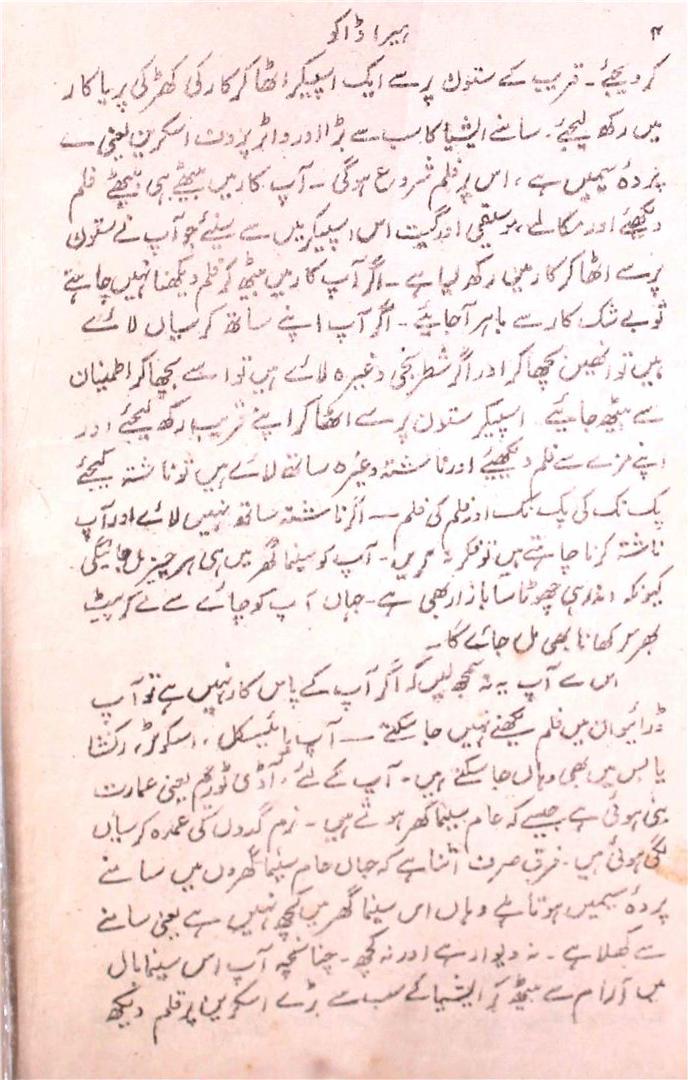 ۴ ہیرا ڈاکو
کر دیجئے۔ قریب کے ستون پر سے ایک اسپیکر اٹھا کر کار کی کھڑکی پر یا کار
میں رکھ لیجئے۔ سامنے ایشیا کا سب سے بڑا اور واٹر پروف اسکرین یعنی سے
پردۂ سیمیں ہے، اس پر فلم شروع ہوگی۔ آپ کار میں بیٹھے ہی بیٹھے فلم
دیکھئے اور مکالمے، موسیقی اور گیت اس اسپیکر میں سے سنیئے جو آپ نے ستون
پر سے اٹھا کر کار میں رکھ لیا ہے۔ اگر آپ کار میں بیٹھ کر فلم دیکھنا نہیں چاہتے
تو بے شک کار سے باہر آجائیے۔ اگر آپ اپنے ساتھ کرسیاں لائے
ہیں تو انھیں بچھا کر اور اگر شطرنجی وغیرہ لائے ہیں تو اسے بچھا کر اطمینان
سے بیٹھ جائیے۔ اسپیکر ستون پر سے اٹھا کر اپنے قریب رکھ لیجئے اور
اپنے مزے سے فلم دیکھیئے اور ناشتہ وغیرہ ساتھ لائے ہیں تو ناشتہ کیجئے
پک نک کی پک نک اور فلم کی فلم ـــ اگر ناشتہ ساتھ نہیں لائے اور آپ
ناشتہ کرنا چاہتے ہیں تو فکر نہ کریں۔ آپ کو سینما گھر میں ہی ہر چیز مل جائیگی
کیونکہ اندر ہی چھوٹا سا بازار بھی ہے۔ جہاں آپ کو چائے سے لے کر پیٹ
بھر کر کھانا بھی مل جائے گا۔
اس سے آپ یہ نہ سمجھ لیں کہ اگر آپ کے پاس کار نہیں ہے تو آپ
ڈرائیو ان میں فلم دیکھنے نہیں جا سکتے ـــ آپ بائیسکل، اسکوٹر، رکشا
یا بس میں بھی وہاں جا سکتے ہیں۔ آپ کے لئے، آڈی ٹوریم یعنی عمارت
بنی ہوئی ہے جیسے کہ عام سینما گھر ہوتے ہیں۔ نرم گدوں کی عمدہ کرسیاں
لگی ہوئی ہیں۔ فرق صرف اتنا ہے کہ جہاں عام سینما گھروں میں سامنے
پردۂ سیمیں ہوتا ہے وہاں اس سینما گھر میں کچھ نہیں ہے یعنی سامنے
سے کھلا ہے۔ نہ دیوار ہے اور نہ کچھ۔ چنانچہ آپ اس سینما ہال
میں آرام سے بیٹھ کر ایشیا کے سب سے بڑے اسکرین پر فلم دیکھ